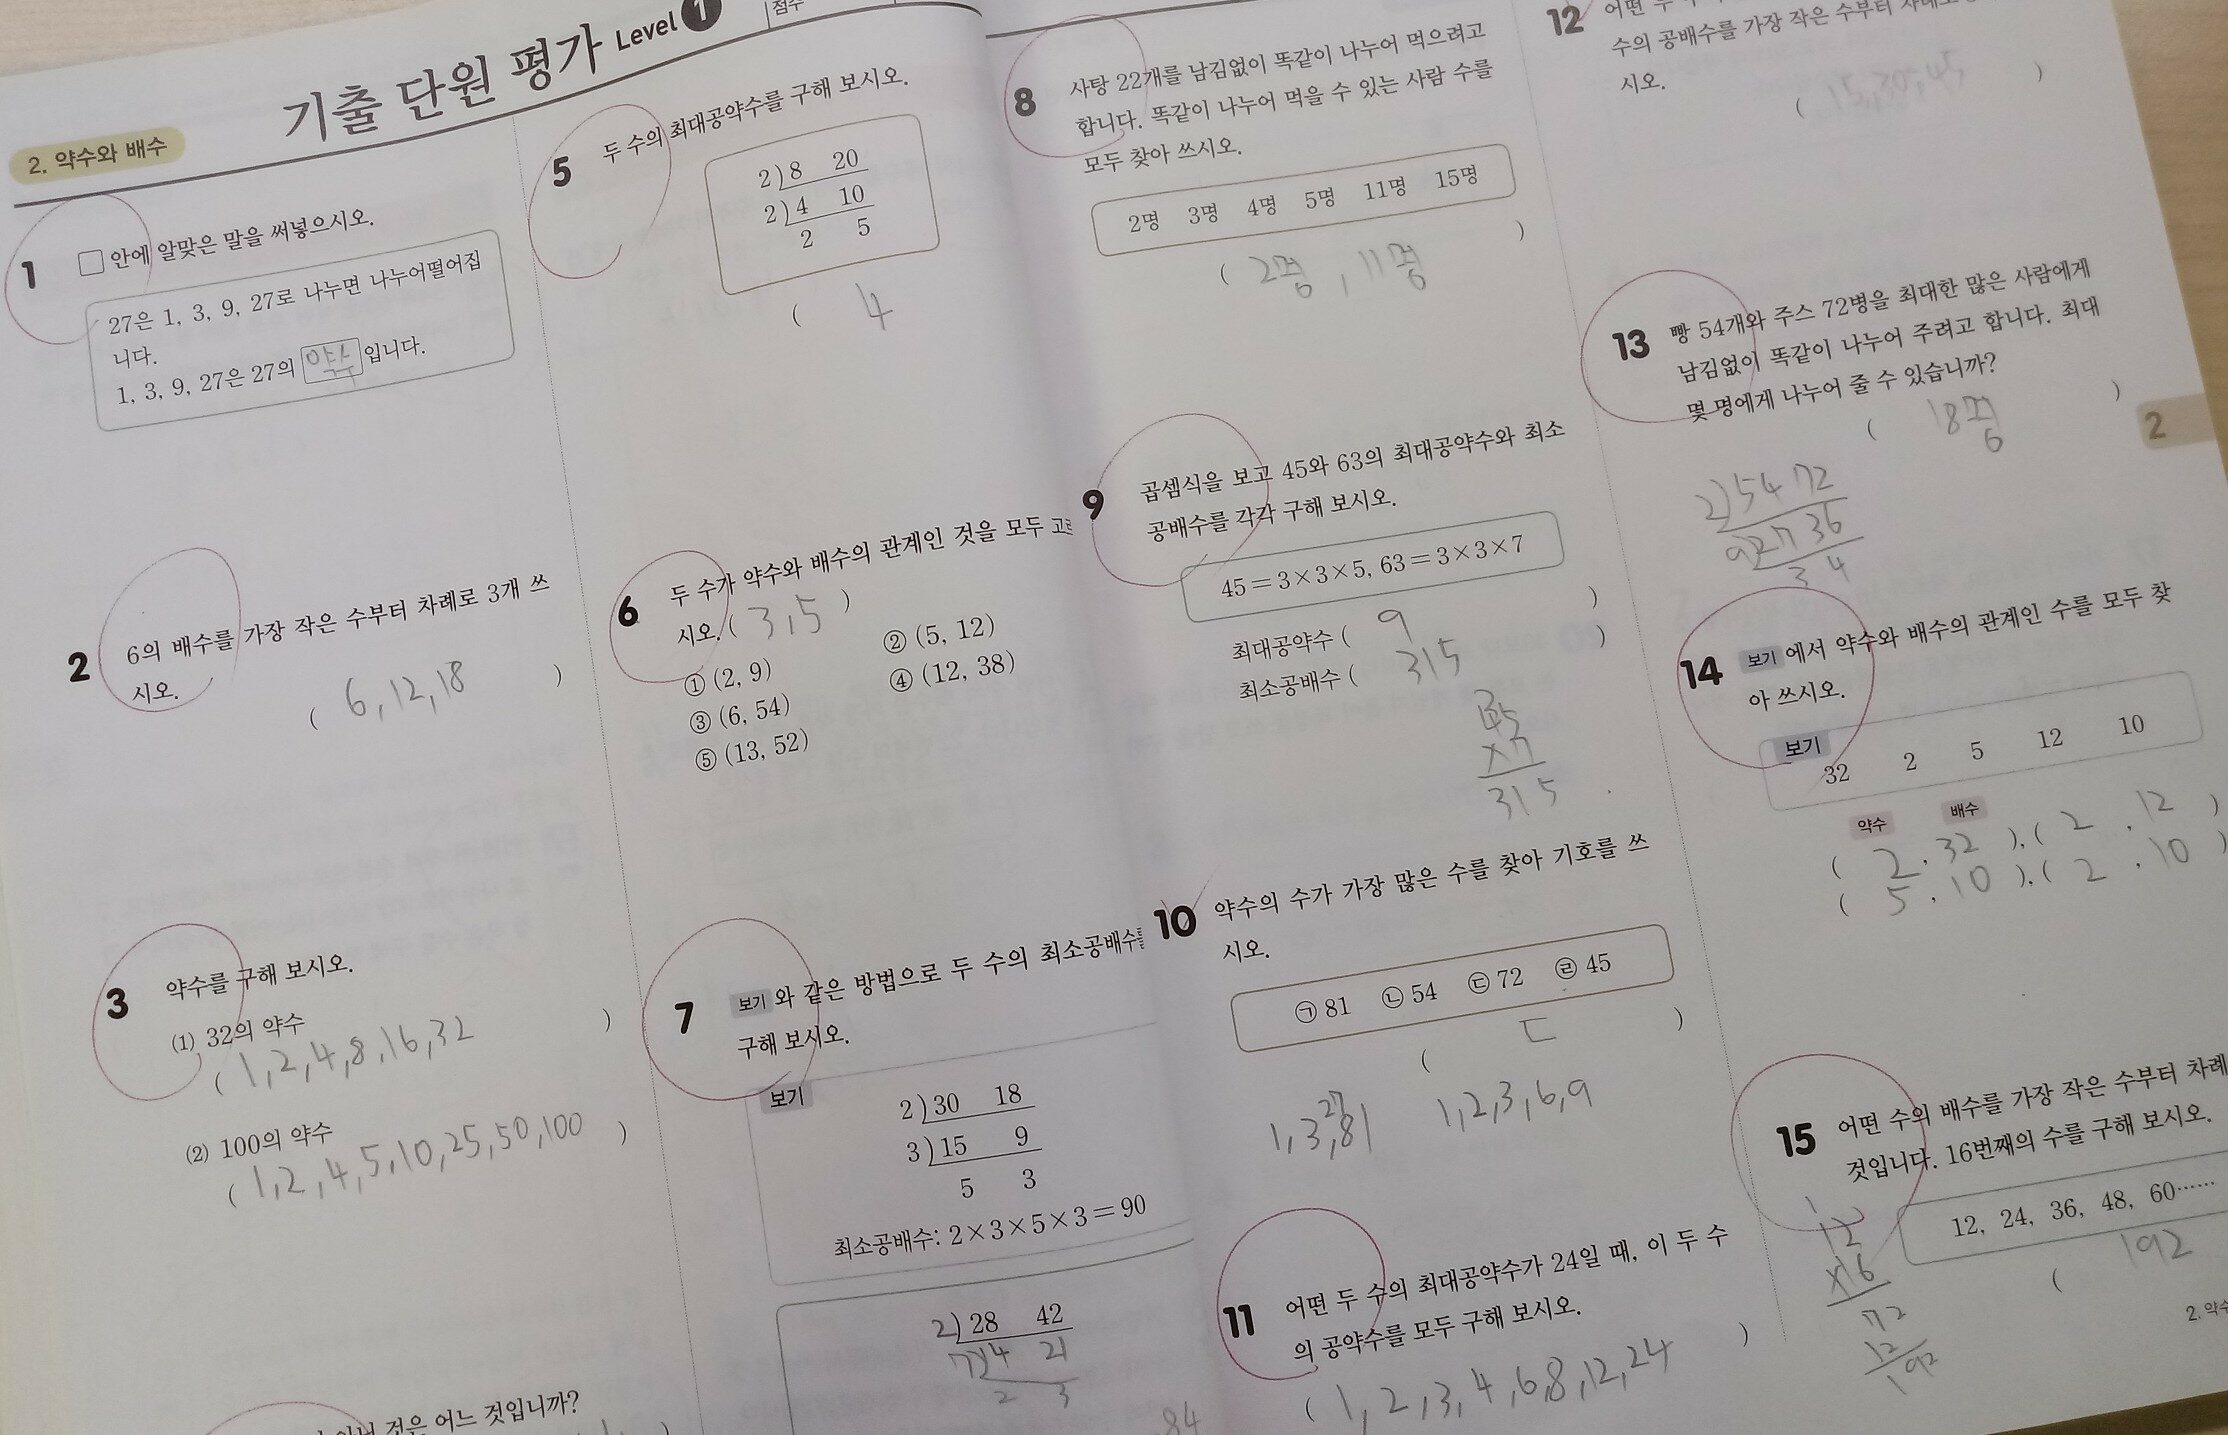 기출 단원 평가 Level 1
점수
2. 약수와 배수
1 □ 안에 알맞은 말을 써넣으시오.
27은 1, 3, 9, 27로 나누면 나누어떨어집
니다.
1, 3, 9, 27은 27의 약수 입니다.
2 6의 배수를 가장 작은 수부터 차례로 3개 쓰
시오.
( 6, 12, 18 )
3 약수를 구해 보시오.
(1) 32의 약수
( 1, 2, 4, 8, 16, 32 )
(2) 100의 약수
( 1, 2, 4, 5, 10, 25, 50, 100 )
것은 어느 것입니까?
5 두 수의 최대공약수를 구해 보시오.
2) 8 20
2) 4 10
2 5
( 4
6 두 수가 약수와 배수의 관계인 것을 모두 고르
시오. ( 3, 5 )
① (2, 9) ② (5, 12)
③ (6, 54) ④ (12, 38)
⑤ (13, 52)
7 보기 와 같은 방법으로 두 수의 최소공배수를
구해 보시오.
보기
2) 30 18
3) 15 9
5 3
최소공배수: 2×3×5×3=90
2) 28 42
7) 14 21
2 3
84
8 사탕 22개를 남김없이 똑같이 나누어 먹으려고
합니다. 똑같이 나누어 먹을 수 있는 사람 수를
모두 찾아 쓰시오.
2명 3명 4명 5명 11명 15명
( 2명, 11명 )
9 곱셈식을 보고 45와 63의 최대공약수와 최소
공배수를 각각 구해 보시오.
45=3×3×5, 63=3×3×7
최대공약수 ( 9 )
최소공배수 ( 315 )
45
×7
315
10 약수의 수가 가장 많은 수를 찾아 기호를 쓰
시오.
㉠ 81 ㉡ 54 ㉢ 72 ㉣ 45
( ㄷ )
27
1, 3, 81 1, 2, 3, 6, 9
11 어떤 두 수의 최대공약수가 24일 때, 이 두 수
의 공약수를 모두 구해 보시오.
( 1, 2, 3, 4, 6, 8, 12, 24 )
12 어떤 두
수의 공배수를 가장 작은 수부터
시오.
( 15, 30, 45 )
13 빵 54개와 주스 72병을 최대한 많은 사람에게
남김없이 똑같이 나누어 주려고 합니다. 최대
몇 명에게 나누어 줄 수 있습니까?
( 18명 )
2) 54 72
9) 27 36
3 4
2
14 보기 에서 약수와 배수의 관계인 수를 모두 찾
아 쓰시오.
보기
32 2 5 12 10
약수 배수
( 2, 32 ), ( 2, 12 )
( 5, 10 ), ( 2, 10 )
15 어떤 수의 배수를 가장 작은 수부터 차례
것입니다. 16번째의 수를 구해 보시오.
12, 24, 36, 48, 60……
( 192
1
12
×16
72
12
192
2. 약수